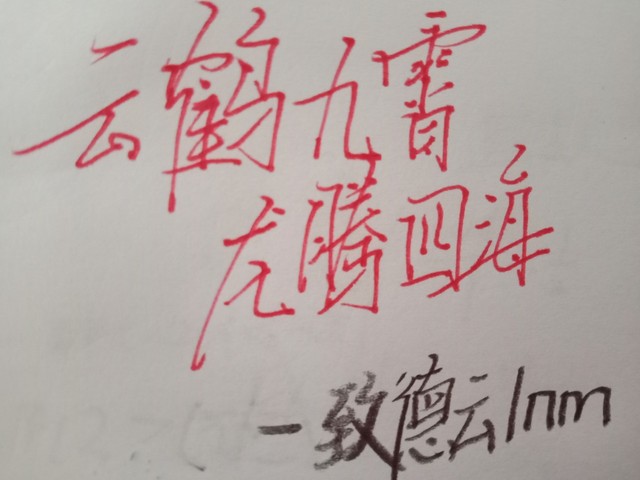 云鹤九霄
龙腾四海
一致德云1nm